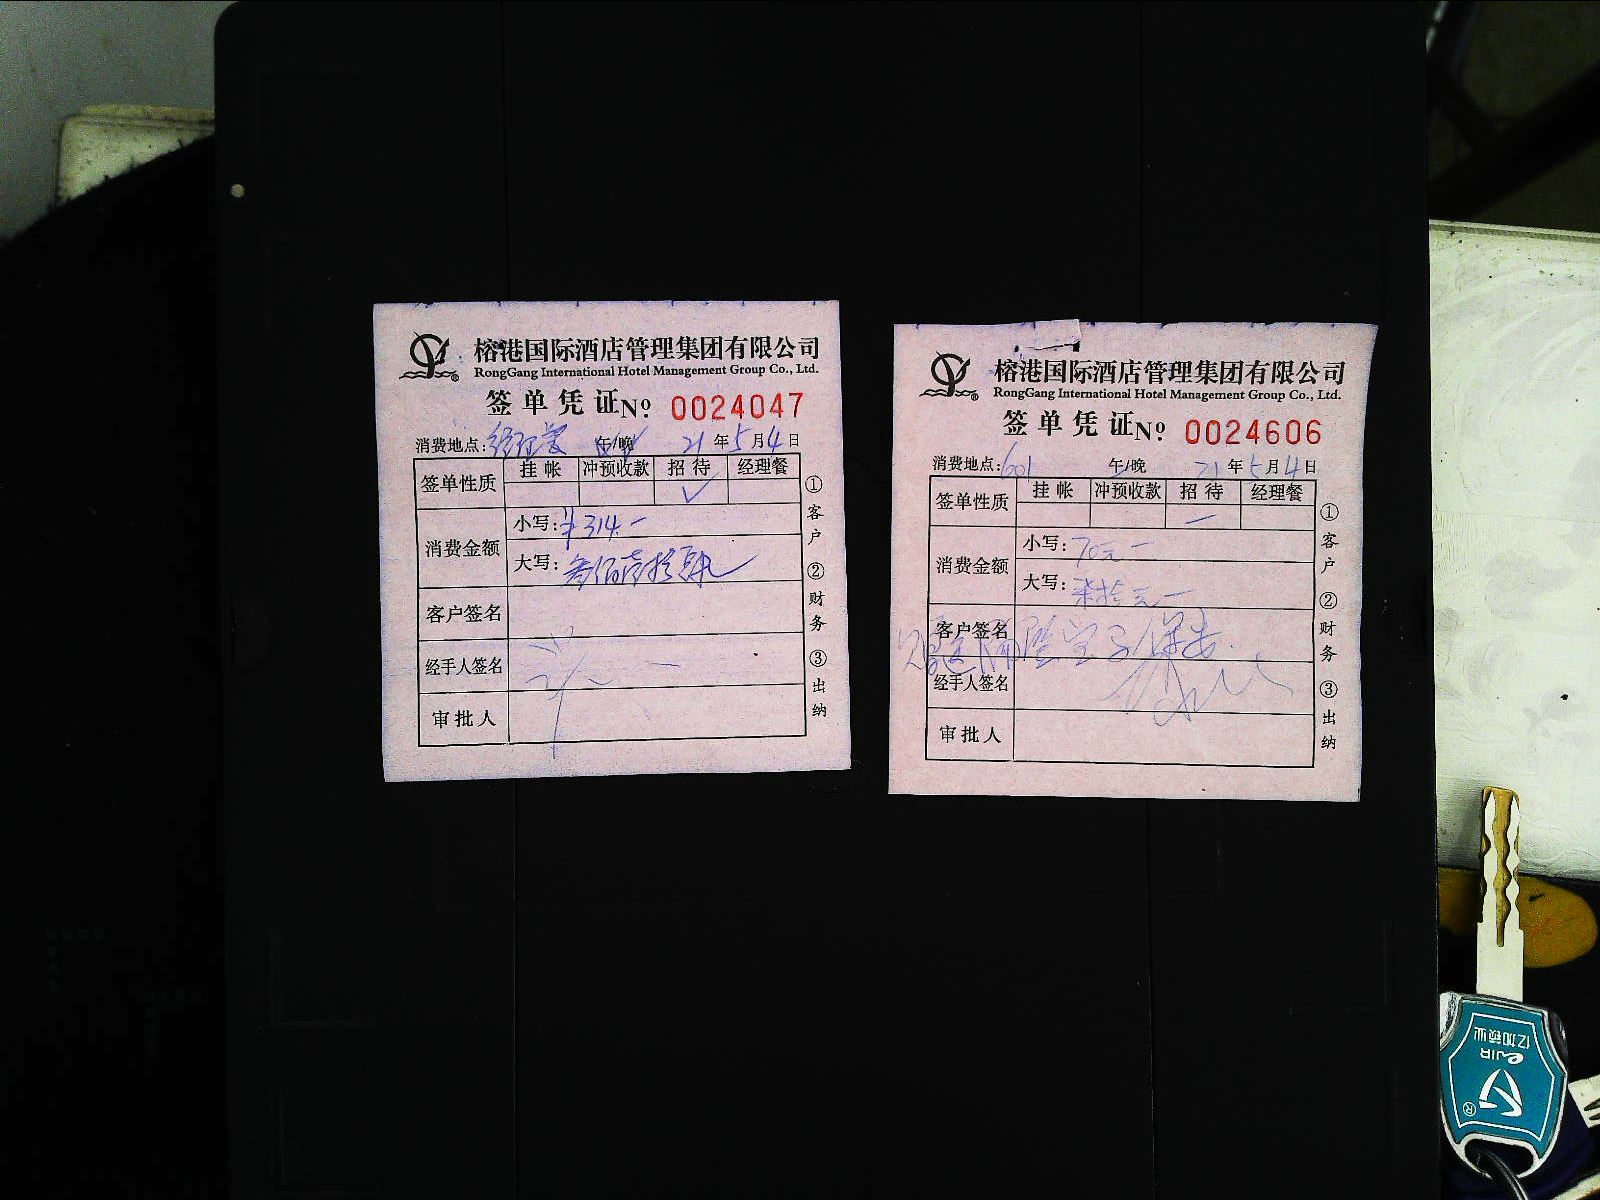 榕港国际酒店管理集团有限公司
RongGang International Hotel Management Group Co., Ltd.
签单凭证№ 0024047
消费地点: 午/晚 21年5月4日
签单性质 挂帐 冲预收款 招待 经理餐
✓
消费金额 小写: ¥314.一
大写: 叁佰壹拾
客户签名
经手人签名
审批人
①客户 ②财务 ③出纳
榕港国际酒店管理集团有限公司
RongGang International Hotel Management Group Co., Ltd.
签单凭证№ 0024606
消费地点: 601 午/晚 21年5月4日
签单性质 挂帐 冲预收款 招待 经理餐
消费金额 小写: 70元一
大写: 柒拾元一
客户签名
经手人签名
审批人
①客户 ②财务 ③出纳
亿加锁业
eJIA
®